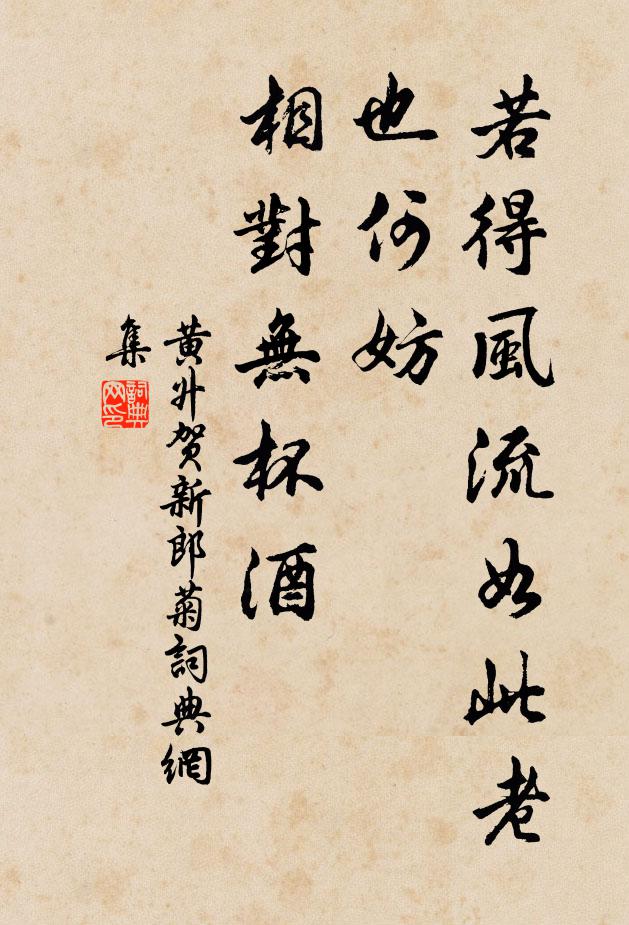 若得風流如此老
也何妨
相對無杯酒
黄升贺新郎菊詞典網
集
詞典
网印